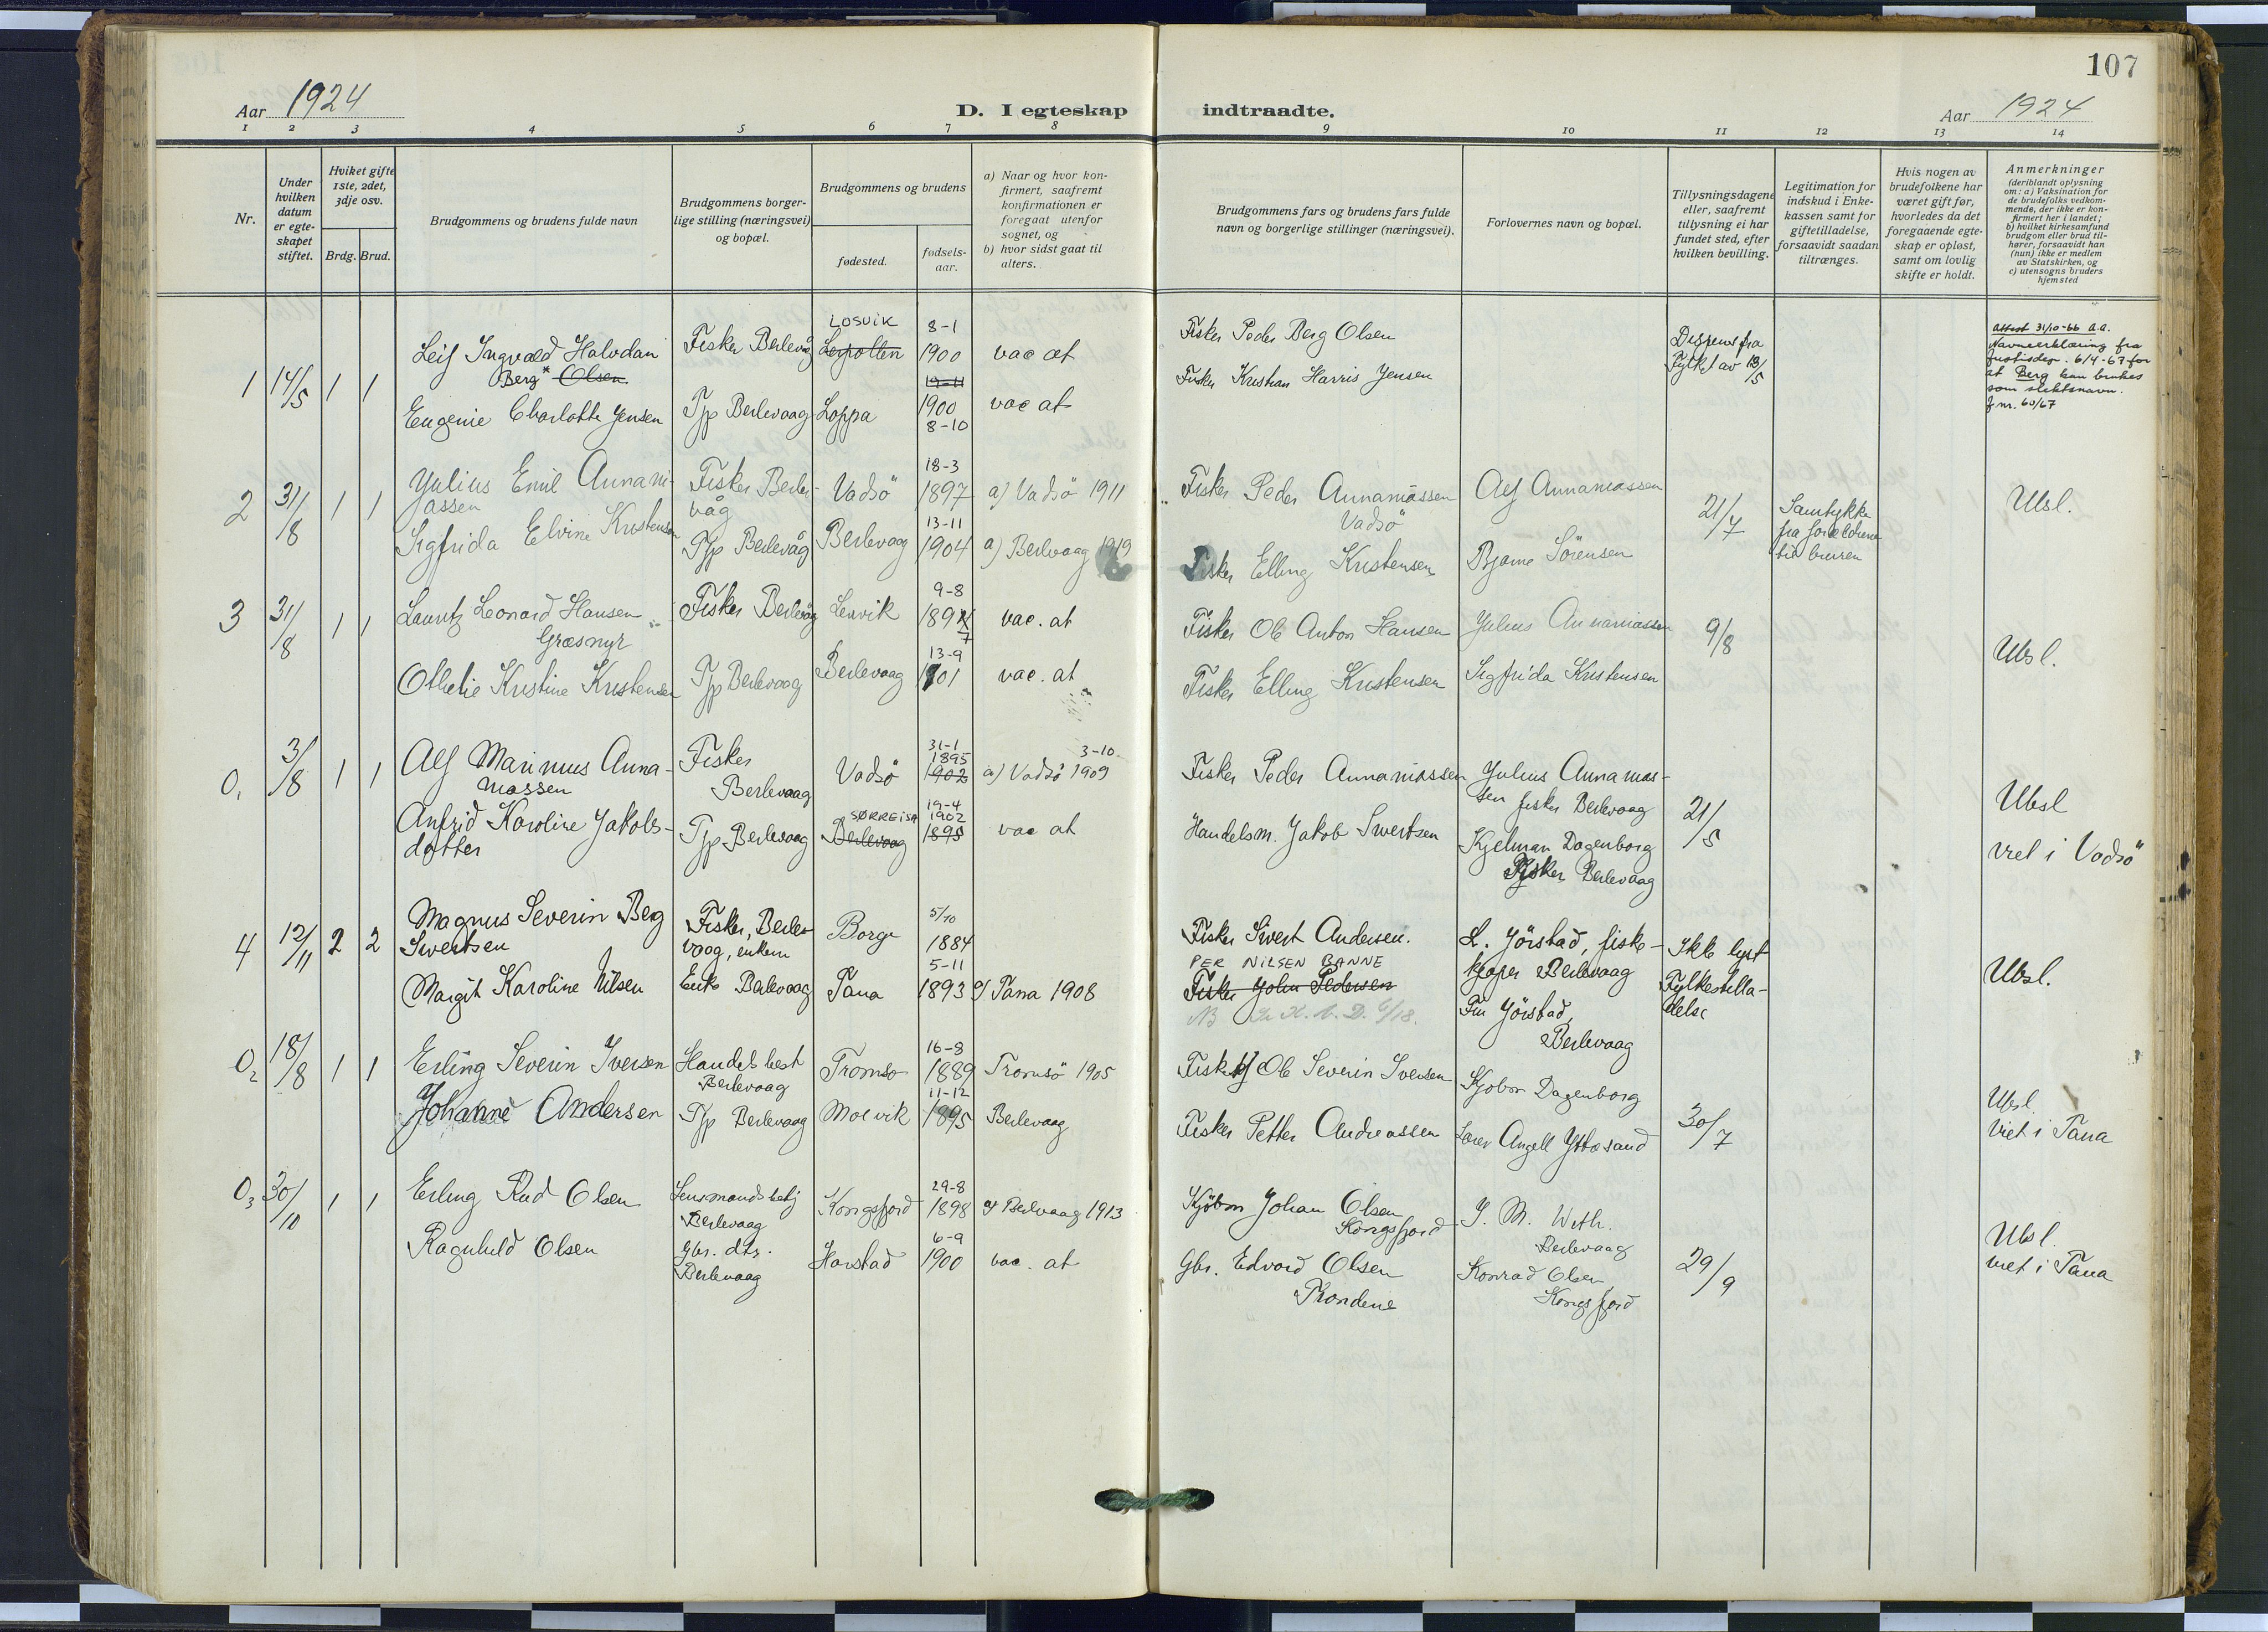 107
Aar 1924
D. I egteskap indtraadte.
Aar 1924
1 2 3 4 5 6 7 8 9 10 11 12 13 14
Nr.
Under hvilken datum er egte-skapet stiftet.
Hviket gifte 1ste, 2det, 3dje osv.
Brdg. Brud.
Brudgommens og brudens fulde navn
Brudgommens borger-lige stilling (næringsvei) og bopæl.
Brudgommens og brudens
fødested.
fødsels-aar.
a) Naar og hvor kon-firmert, saafremt konfirmationen er foregaat utenfor sognet, og
b) hvor sidst gaat til alters.
Brudgommens fars og brudens fars fulde navn og borgerlige stillinger (næringsvei).
Forlovernes navn og bopæl.
Tillysningsdagene eller, saafremt tillysning ei har fundet sted, efter hvilken bevilling.
Legitimation for indskud i Enke-kassen samt for giftetilladelse, forsaavidt saadan tiltrænges.
Hvis nogen av brudefolkene har været gift før, hvorledes da det foregaaende egte-skap er opløst, samt om lovlig skifte er holdt.
Anmerkninger (deriblandt oplysning om: a) Vaksination for de brudefolks vedkom-mende, der ikke er kon-firmert her i landet; b) hvilket kirkesamfund brudgom eller brud til-hører, forsaavidt han (hun) ikke er medlem av Statskirken, og c) utensogns bruders hjemsted
1 14/5 1 1
Leif Ingvald Halvdan
Berg* Olsen
Fisker Berlevåg
LOSVIK
Lerpollen
8-1
1900
vac at
Fisker Peder Berg Olsen
Dispens fra
Fylket av 13/5
Attest 31/10-66 A.A.
Navneerklæring fra
Justisdep. 6/4-67 for
at Berg kan brukes
som slektsnavn.
J nr. 60/67
Eugenie Charlotte Jensen
Tjp Berlevaag
Loppa
19-11
1900
8-10
vac at
Fisker Kristian Harris Jensen
2 31/8 1 1
Julius Emil Annani-
jassen
Fisker Berle-
våg
Vadsö
18-3
1897
a) Vadsö 1911
Fisker Peder Annaniassen
Vadsö
Alf Annaniassen
21/7
Samtykke
fra foreldrene
til bruren
Ubsl.
Sigfrida Elvine Kristensen
Tjp Berlevåg
Berlevaag
13-11
1904
a) Berlevaag 1919
Fisker Elling Kristensen
Bjarne Sörensen
3 31/8 1 1
Lauritz Leonard Hansen
Græsmyr
Fisker Berlevåg
Lesvik
9-8
1897
vac. at
Fisker Ole Anton Hansen
Julius Annaniassen
9/8
Ubsl.
Othelie Kristine Kristensen
Tjp Berlevaag
Berlevaag
13-9
1901
vac. at
Fisker Elling Kristensen
Sigfrida Kristensen
0, 3/8 1 1
Alf Marinus Anna-
niassen
Fisker
Berlevaag
Vadsö
31-1
1895
1902
3-10
a) Vadsö 1909
Fisker Peder Annaniassen
Julius Annanias-
sen fisker Berlevaag
21/5
Ubsl
viet i Vadsö
Anfrid Karoline Jakobs-
datter
Tjp Berlevaag
SØRREISA
Berlevaag
19-4
1902
1895
vac at
Handelsm. Jakob Sivertsen
Kjelman Dagenborg
Fisker Berlevaag
4 12/11 2 2
Magnus Severin Berg
Sivertsen
Fisker, Berle
vaag, enkem
Borge
5/10
1884
Fisker Sivert Andersen.
L. Jörstad, fiske-
kjøper Berlevaag
Ikke lyst
Fylkestilla-
delse
Ubsl.
Margit Karoline Nilsen
Enke Berlevaag
Tana
5-11
1893
a) Tana 1908
PER NILSEN BANNE
Fisker John Pedersen
Fru Jörstad,
Berlevaag
02 18/8 1 1
Erling Severin Iversen
Handelsbest
Berlevaag
Tromsø
16-8
1889
Tromsö 1905
Fisker Ole Severin Iversen
Kjøbm Dagenborg
30/7
Ubsl
viet i Tana
Johanne Andersen
Tjp Berlevaag
Molvik
11-12
1895
Berlevaag
Fisker Petter Andreassen
Lærer Angell Yttøsand
03 30/10 1 1
Erling Rud Olsen
Lensmandsbetj
Berlevaag
Kongsfjord
29-8
1898
a) Berlevaag 1913
Kjøbm Johan Olsen
Kongsfjord
J. M. With.
Berlevaag
29/9
Ubsl.
viet i Tana
Ragnhild Olsen
Gbr. dtr.
Berlevaag
Harstad
6-9
1900
vac. at
Gbr. Edvard Olsen
Trondene
Konrad Olsen
Kongsfjord